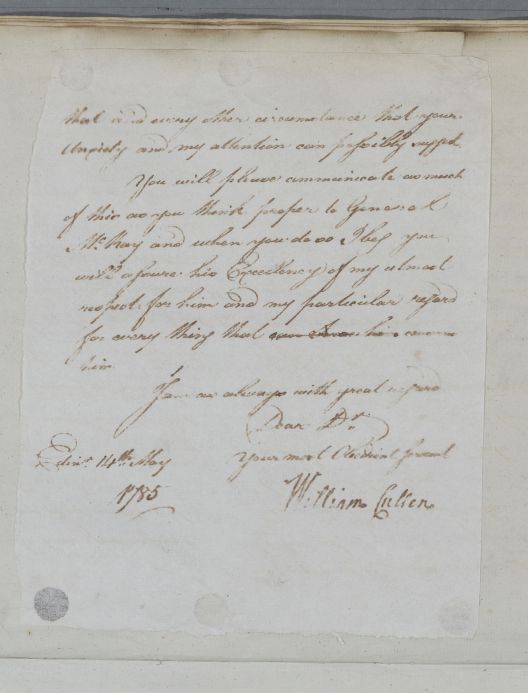 that and every other circumstance that your
Anxiety and my attention can possibly suggest.
You will please communicate as much
of this as you think proper to General
McKay and when you do so I beg you
will assure his Excellency of my utmost
respect for him and my particular regard
for every thing that concerns
him
I am as always with great regard
Dear Dr.
Edinr. 14th May
Your most Obedient Servant
1785
William Cullen